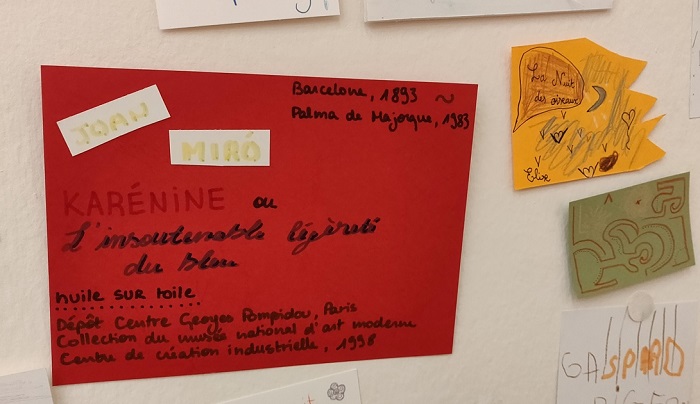 JOAN
MIRÓ
Barcelone, 1893 ~
Palma de Majorque, 1983
KARÉNINE ou
L'insoutenable légèreté
du bleu
huile sur toile
Dépôt Centre Georges Pompidou, Paris
Collection du musée national d'art moderne
Centre de création industrielle, 1998
La Nuit
des oiseaux
Elise
GASPARD